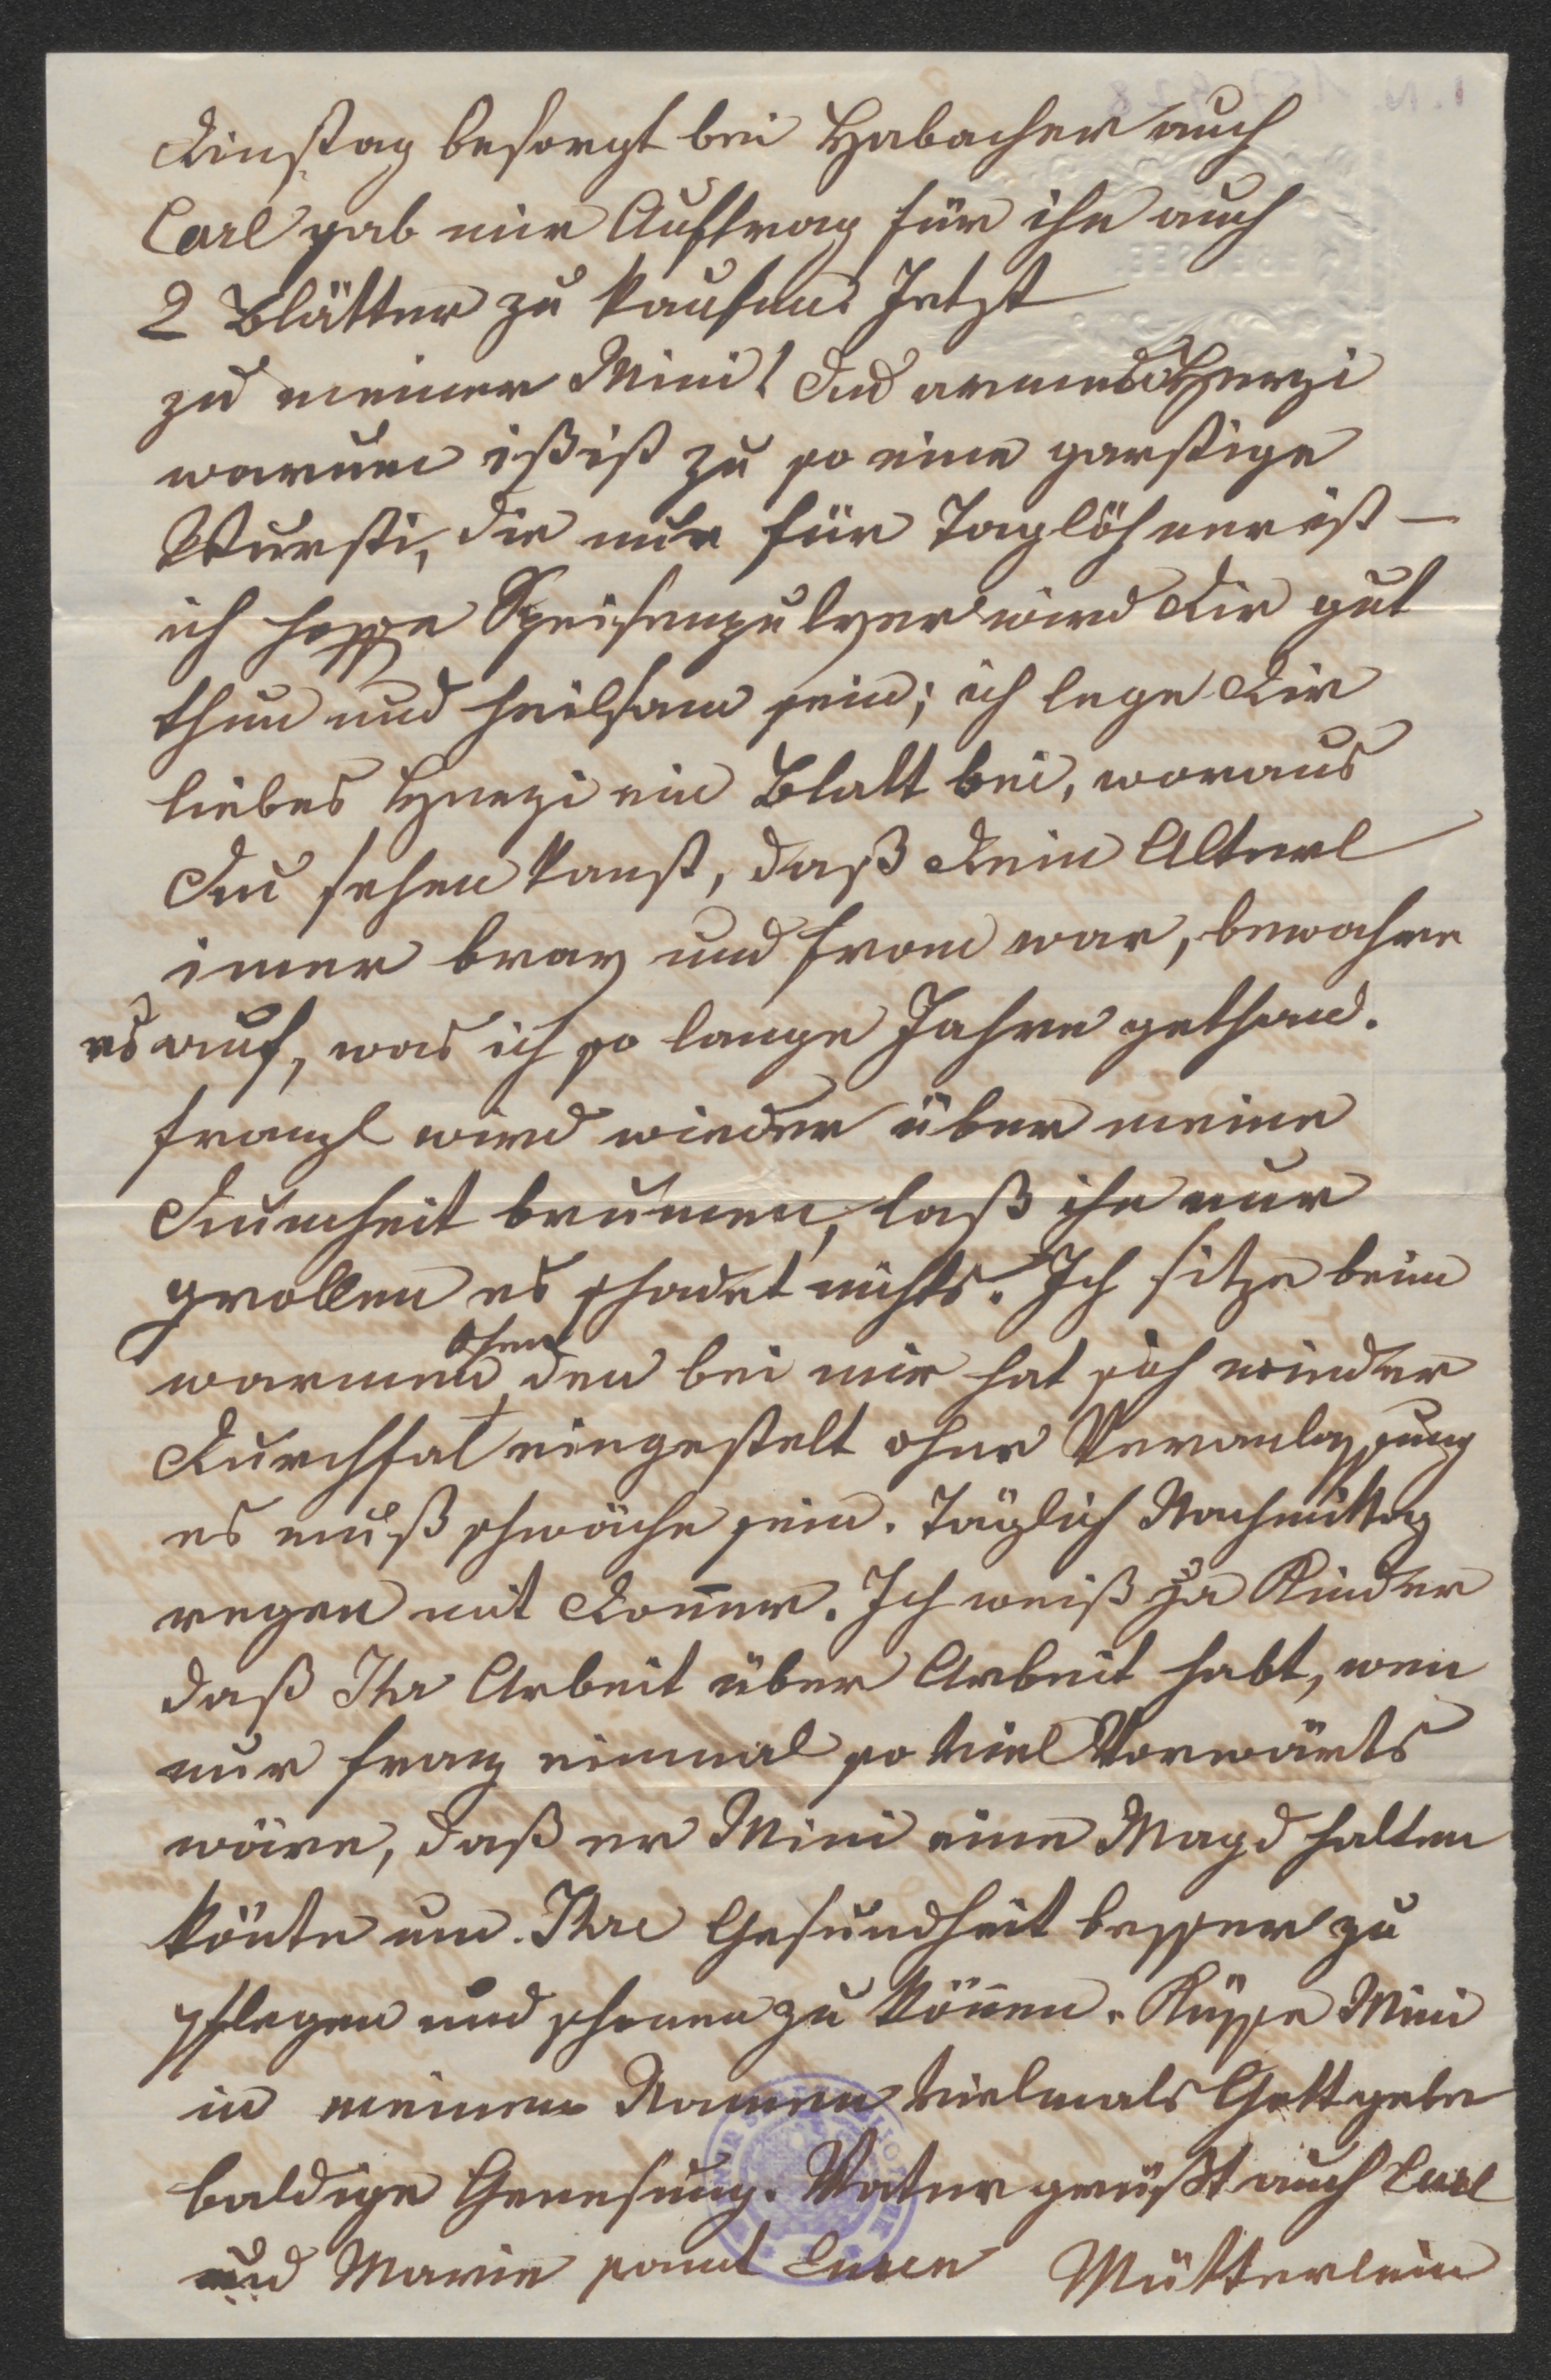 Dinstag besorgt bei Habacher auch
Carl gab mir Auftrag für ihn auch
2 Blätter zu kaufen. Jetzt
zu meiner Mini! Du armes Herzi
warum ißist zu so eine garstige
Wursti, die nur für Taglöhner ist —
ich hoffe Speisenpulver wird Dir gut
thun und heilsam sein; ich lege Dir
liebes Herzi ein Blatt bei, woraus
Du sehen kanst, daß Dein Alterl
imer brav und from war, bewahre
es auf, was ich so lange Jahre gethan.
Franzl wird wieder über meine
Dumheit brumen, laß ihn nur
grollen es schadet nichts. Ich sitze beim
warmen Ofen, den bei mir hat sich wieder
Durchfal eingestelt ohne Veranlassung
es muß schwäche sein. Täglich Nachmittag
regen mit Doner. Ich weiß ja Kinder
daß Ihr Arbeit über Arbeit habt, wen
nur Franz einmal so viel Vorwärts
wäre, daß er Mini eine Magd halten
könte um Ihre Gesundheit besser zu
pflegen und schonen zu könen. Küsse Mini
in meinem Namen vielmals Gott gebe
baldige Genesung. Vater grüßt auch Carl
und Marie samt Euren Mütterlein